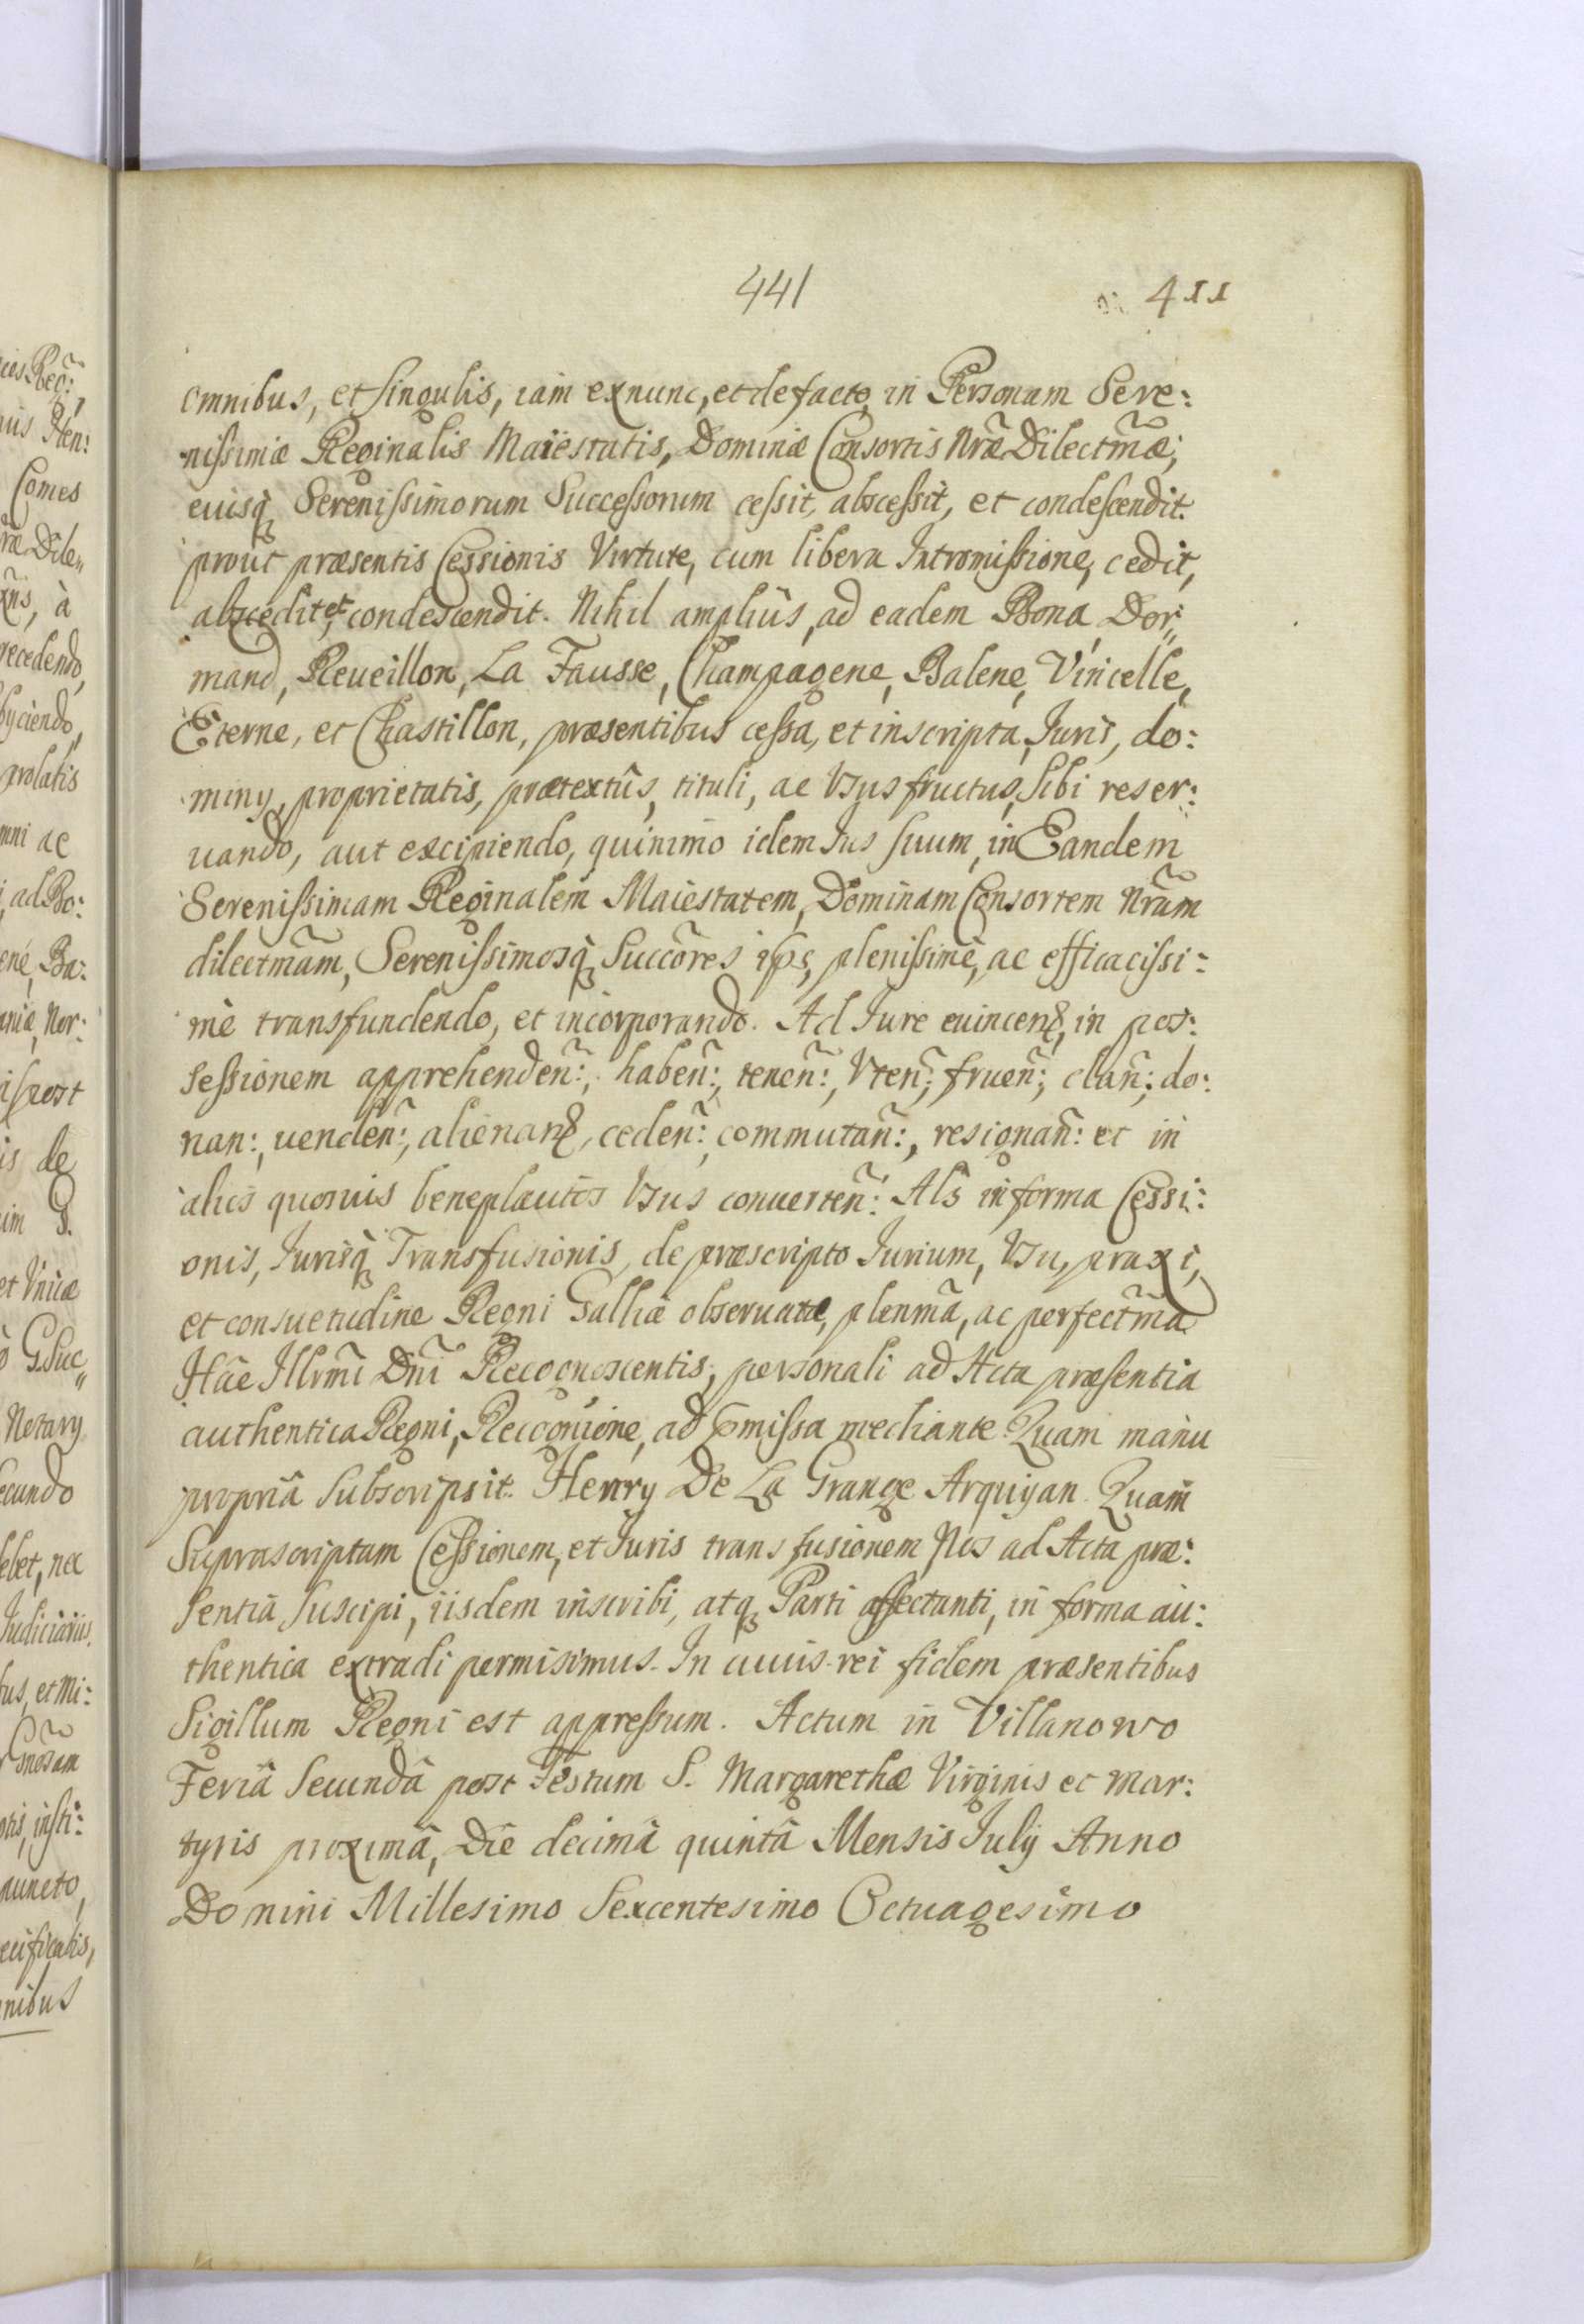 441
411
omnibus, et singulis, iam exnunc, et de facto, in Personam Sere:
nissimæ Reginalis Maiestatis, Dominæ Consortis Nr̃æ Dilectm̃æ;
eiusq́ Serenissimorum Successorum cessit, abscessit, et condescendit.
prout præsentis Cessionis Virtute, cum libera Intromissione, cedit,
abscedit, et condescendit. Nihil ampliûs, ad eadem Bona Dor„
mand, Reueillon, La Fausse, Champagene, Balene, Vincelle,
Eterne, et Chastillon, præsentibus cessa, et inscripta, Juris, do:
minij, proprietatis, prætextûs, tituli, ac Vsusfructus, sibi reser:
uando, aut excipiendo, quinimo idem Jus suum, in Eandem
Serenissimam Reginalem Maiestatem, Dominam Consortem Nr̃am
dilectm̃am, Serenissimosq́ Succõres ips, plenissimè, ac efficacissi:
mè transfundendo, et incorporando. Ad Jure euincend, in pos:
sessionem apprehendeñ:, habeñ:, teneñ:, Vteñ:, frueñ:, dañ:, do:
nan:, uendeñ:, alienand, cedeñ:, commutañ:, resignañ: et in
alios quosuis beneplacitos Vsus conuerteñ: Als̃ in forma Cessi:
onis, Jurisq́ Transfusionis, de præscripto Jurium, Vsu, praxi,
et consuetudine Regni Galliæ obseruatæ, plenm̃a, ac perfectm̃a
Hãc Illrm̃i Dñi Recognoscentis, personali ad Acta præsentia
authentica Regni, Recogñione, ad præmissa mediante. Quam manu
propriâ subscripsit. Henry De La Grange Arquiyan. Quam
Suprascriptam Cessionem, et Juris transfusionem Nos ad Acta præ:
sentia suscipi, iisdem inscribi, atq́ Parti affectanti, in forma au:
thentica extradi permisimus. In cuius rei fidem præsentibus
Sigillum Regni est appressum. Actum in Villanowo
Feriâ Secundâ post Festum S. Margarethæ Virginis et Mar:
tyris proximâ, Die decimâ quintâ Mensis Julij Anno
Domini Millesimo Sexcentesimo Octuagesimo